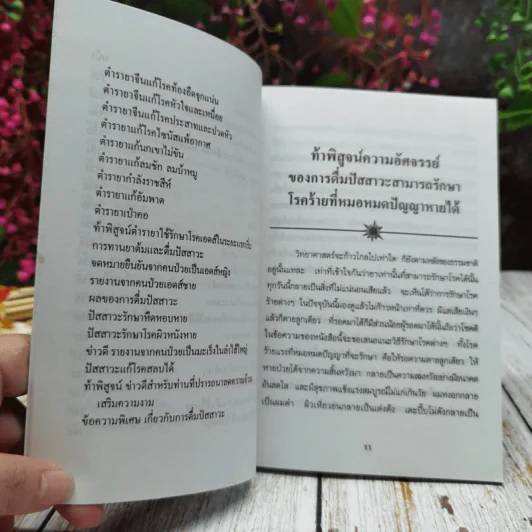 ตำรายาจีนแก้โรคท้องอืดจุกแน่น
ตำรายาจีนแก้โรคหัวใจและเหนื่อย
ตำรายาจีนแก้โรคประสาทและปวดหัว
ตำรายาแก้โรคไซนัสแพ้อากาศ
ตำรายาแก้นกเขาไม่ขัน
ตำรายาแก้ลมชัก ลมบ้าหมู
ตำรายากำลังราชสีห์
ตำรายาแก้อัมพาต
ตำรายาเป่าคอ
ท้าพิสูจน์ตำรายาใช้รักษาโรคเอดส์ในระยะแรกเริ่ม
การทานยาต้มและดื่มปัสสาวะ
จดหมายยืนยันจากคนป่วยเป็นเอดส์หญิง
รายงานจากคนป่วยเอดส์ชาย
ผลของการดื่มปัสสาวะ
ปัสสาวะรักษาหืดหอบหาย
ปัสสาวะรักษาโรคผิวหนังหาย
ข่าวดี รายงานจากคนป่วยเป็นมะเร็งในลำไส้ใหญ่
ปัสสาวะแก้โรคสลบได้
ท้าพิสูจน์ ข่าวดีสำหรับท่านที่ปรารถนาลดความอ้วน
เสริมความงาม
ข้อความพิเศษ เกี่ยวกับการดื่มปัสสาวะ
ท้าพิสูจน์ความอัศจรรย์
ของการดื่มปัสสาวะสามารถรักษา
โรคร้ายที่หมอหมดปัญญาหายได้
วิทยาศาสตร์จะก้าวไกลไปเท่าใด ก็ยังตามหลังของธรรมชาติ
อยู่นั้นแหละ เท่าที่เข้าใจกันว่ายาเท่านั้นที่สามารถรักษาโรคได้นั้น
ทุกวันนี้กลายเป็นสิ่งที่ไม่แน่นอนเสียแล้ว จะเห็นได้ว่าการรักษาโรค
ร้ายต่างๆ ในปัจจุบันนี้มองดูแล้วไม่ก้าวหน้าเท่าที่ควร มีแต่เสียเงิน
แล้วก็ตายลูกเดียว ที่รอดมาได้ก็มีส่วนน้อยผู้รอดมาได้นั้นถือว่าโชคดี
ในข้อความของหนังสือนี้จะขอเสนอแนะวิธีรักษาโรคต่างๆ ทั้งโรค
ร้ายแรงที่หมอหมดปัญญาที่จะรักษา คือให้รอความตายลูกเดียว ให้
หายป่วยได้จากความสิ้นหวังมา กลายเป็นความสมหวังอย่างเมื่ออนาคต
อันสดใส และมีสุขภาพแข็งแรงสมบูรณ์ไม่แก่เกินวัย ผมหงอกกลาย
เป็นผมดำ ผิวเหี่ยวย่นกลายเป็นเต่งตึง เตะปี๊บไม่ดังกลายเป็น
11